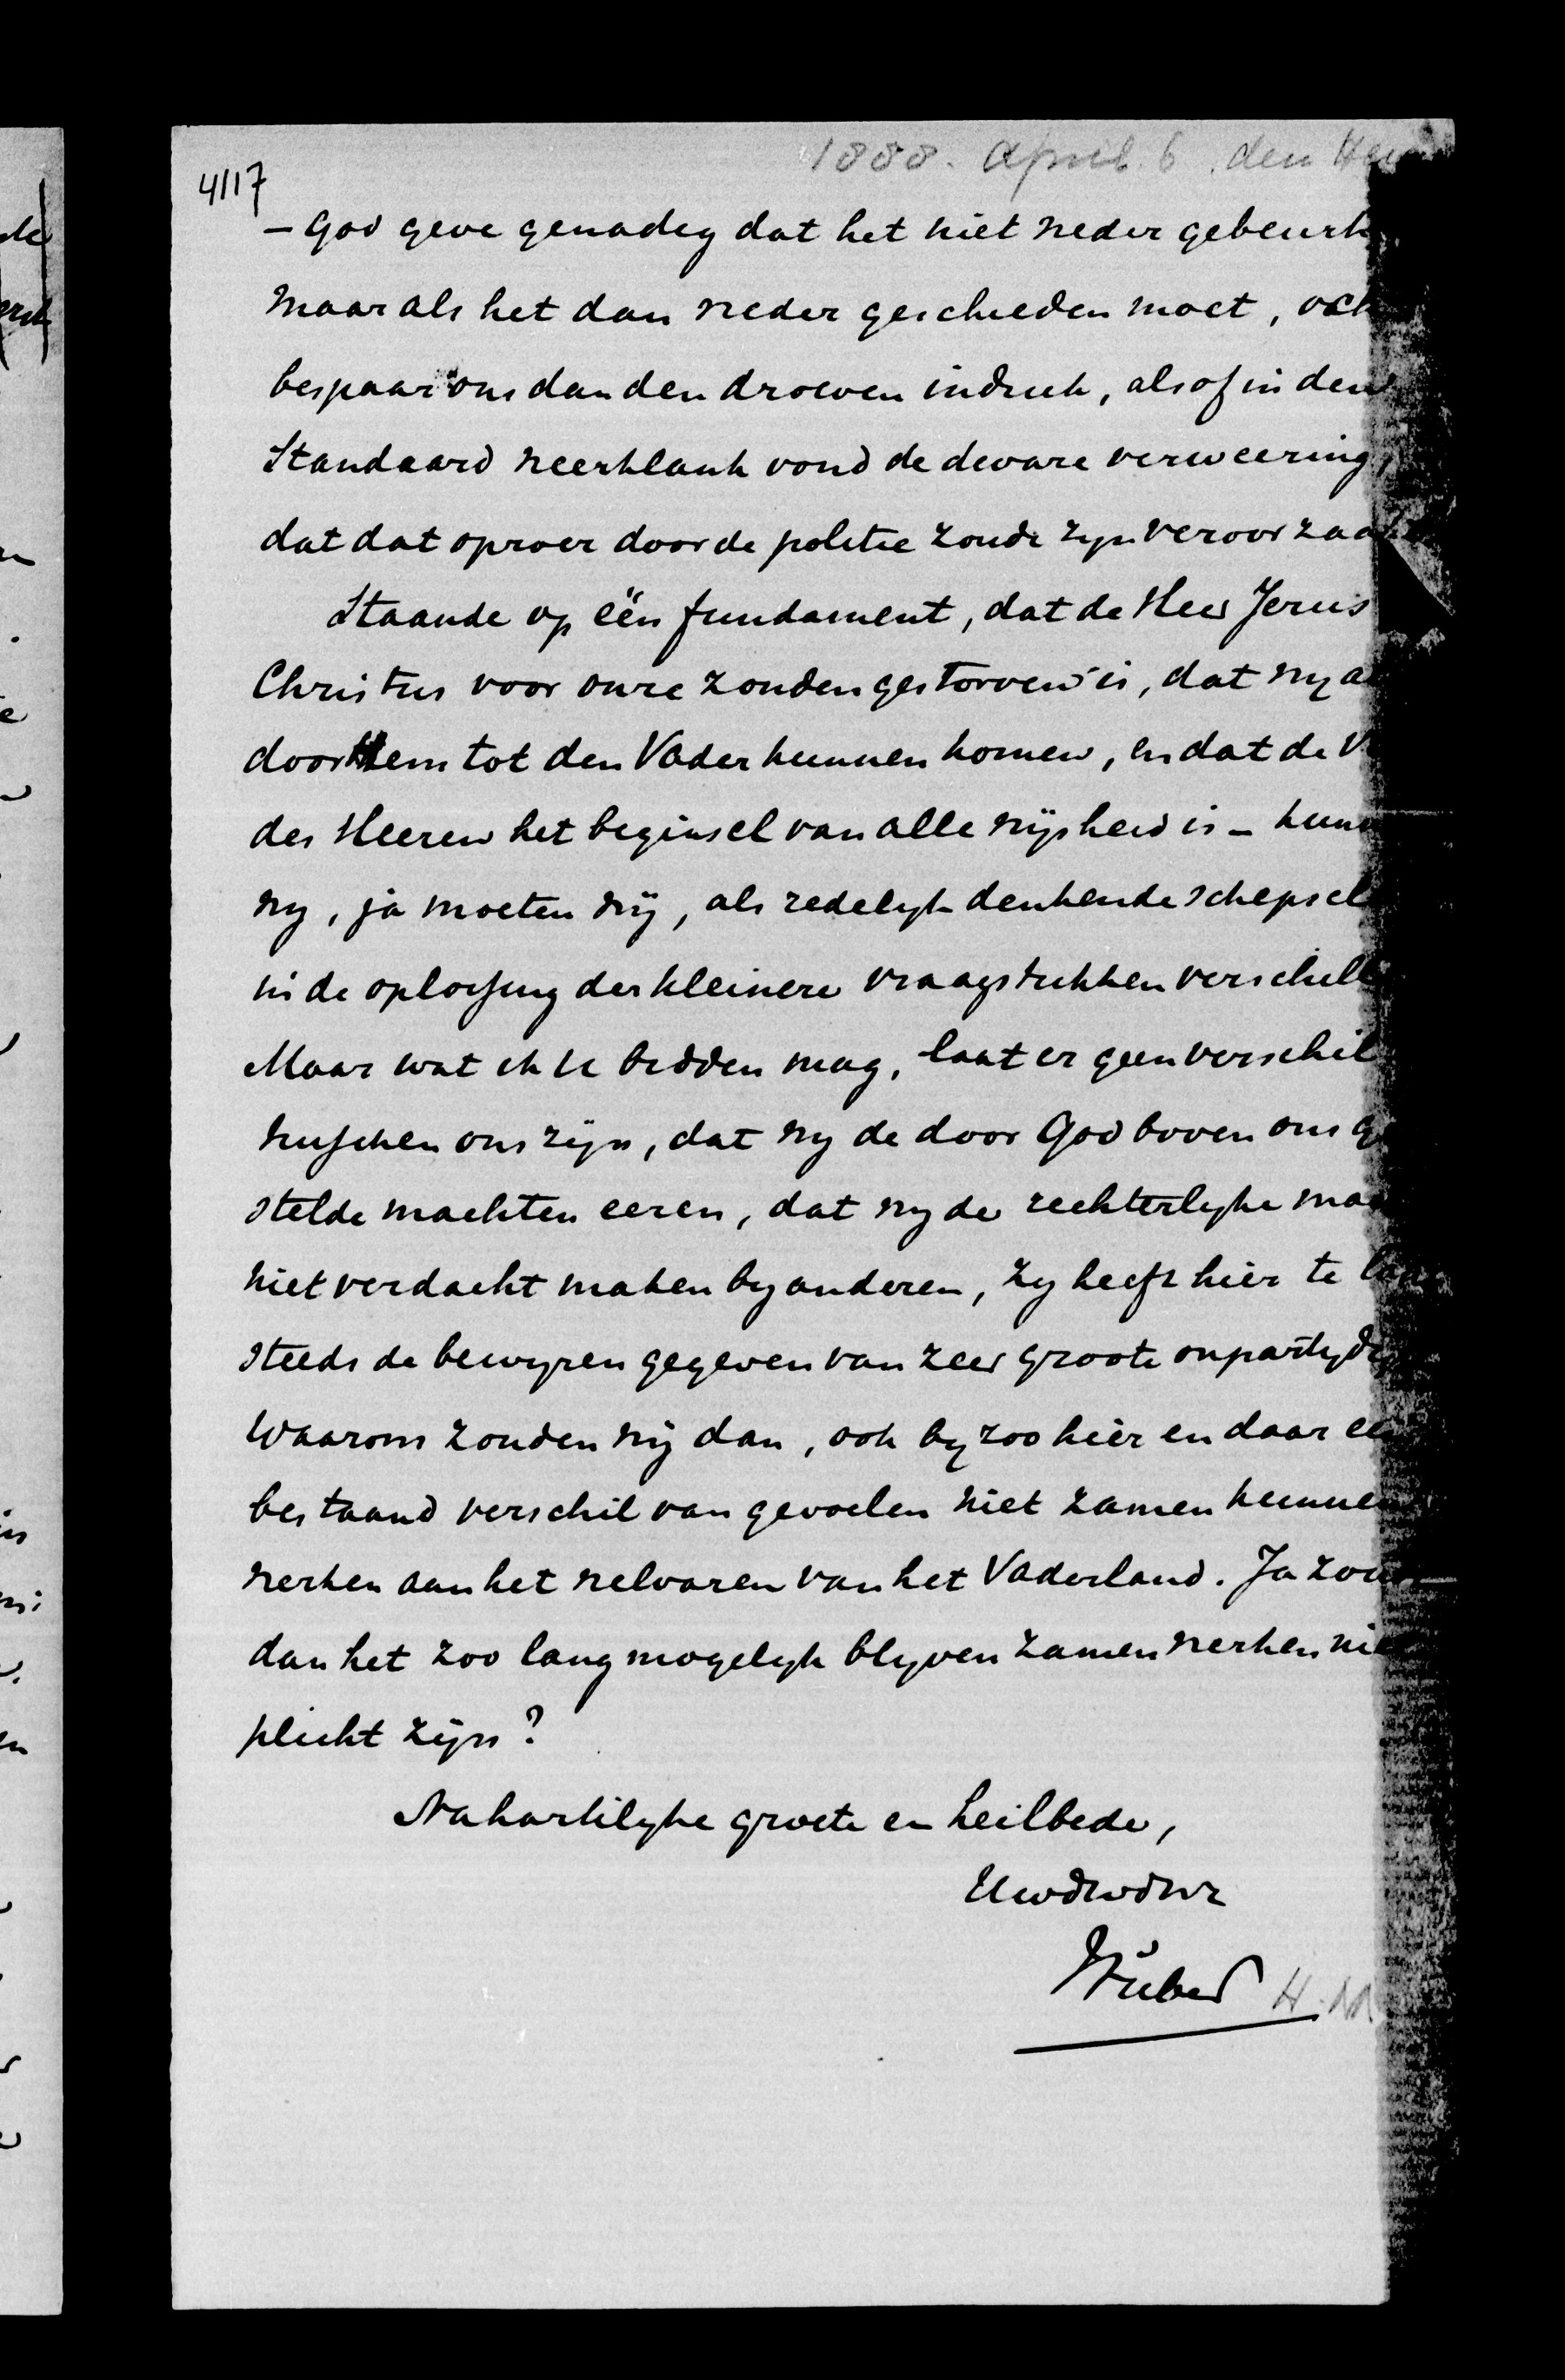 1888. April. 6. den
4117
- God geve genadig dat het niet weder gebeurt
maar als het dan weder geschieden moet, och
bespaar ons dan den droeven indruk, alsof in den
Standaard weerklank vond de dwaze verweering,
dat dat oproer door de politie zoude zyn veroorzaa
Staande op één fundament, dat de Heer Jezus
Christus voor onze zonden gestorven is, dat wy a
door Hem tot den Vader kunnen komen, en dat de V
des Heeren het beginsel van alle wijsheid is - kunn
wy, ja moeten wij, als redelyk denkende schepsel
in de oplossing der kleinere vraagstukken verschill
Maar wat ik U bidden mag, laat er geen verschil
tusschen ons zijn, dat wy de door God boven ons ge
stelde machten eeren, dat wy de rechterlyke mac
niet verdacht maken by anderen, zy heeft hier te lan
steeds de bewyzen gegeven van zeer groote onpartydig
Waarom zouden wij dan, ook by zoo hier en daar een
bestaand verschil van gevoelen niet zamen kunnen
werken aan het welvaren van het Vaderland. Ja zou
dan het zoo lang mogelyk blyven zamenwerken nie
plicht zijn?
Na hartelyke groete en heilbede,
Uwdwdnr
H. M